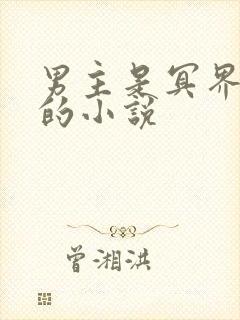 男主是冥界
的小说
曾湘洪